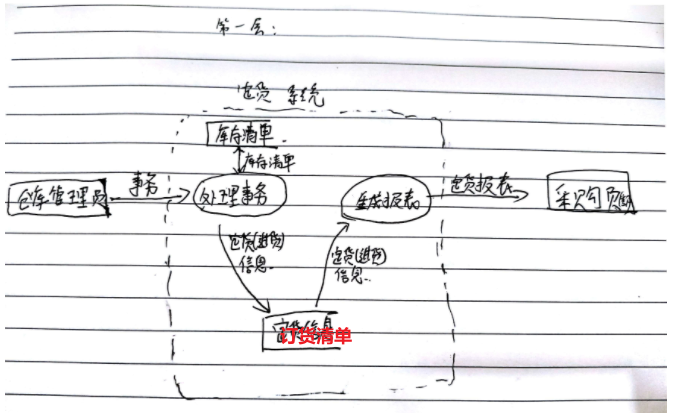 第一层:
定货 系统
库存清单
库存清单
仓库管理员
事务
处理事务
生成报表
定货报表
采购员
定货(进货)
信息
定货(进货)
信息
定货信息
订货清单